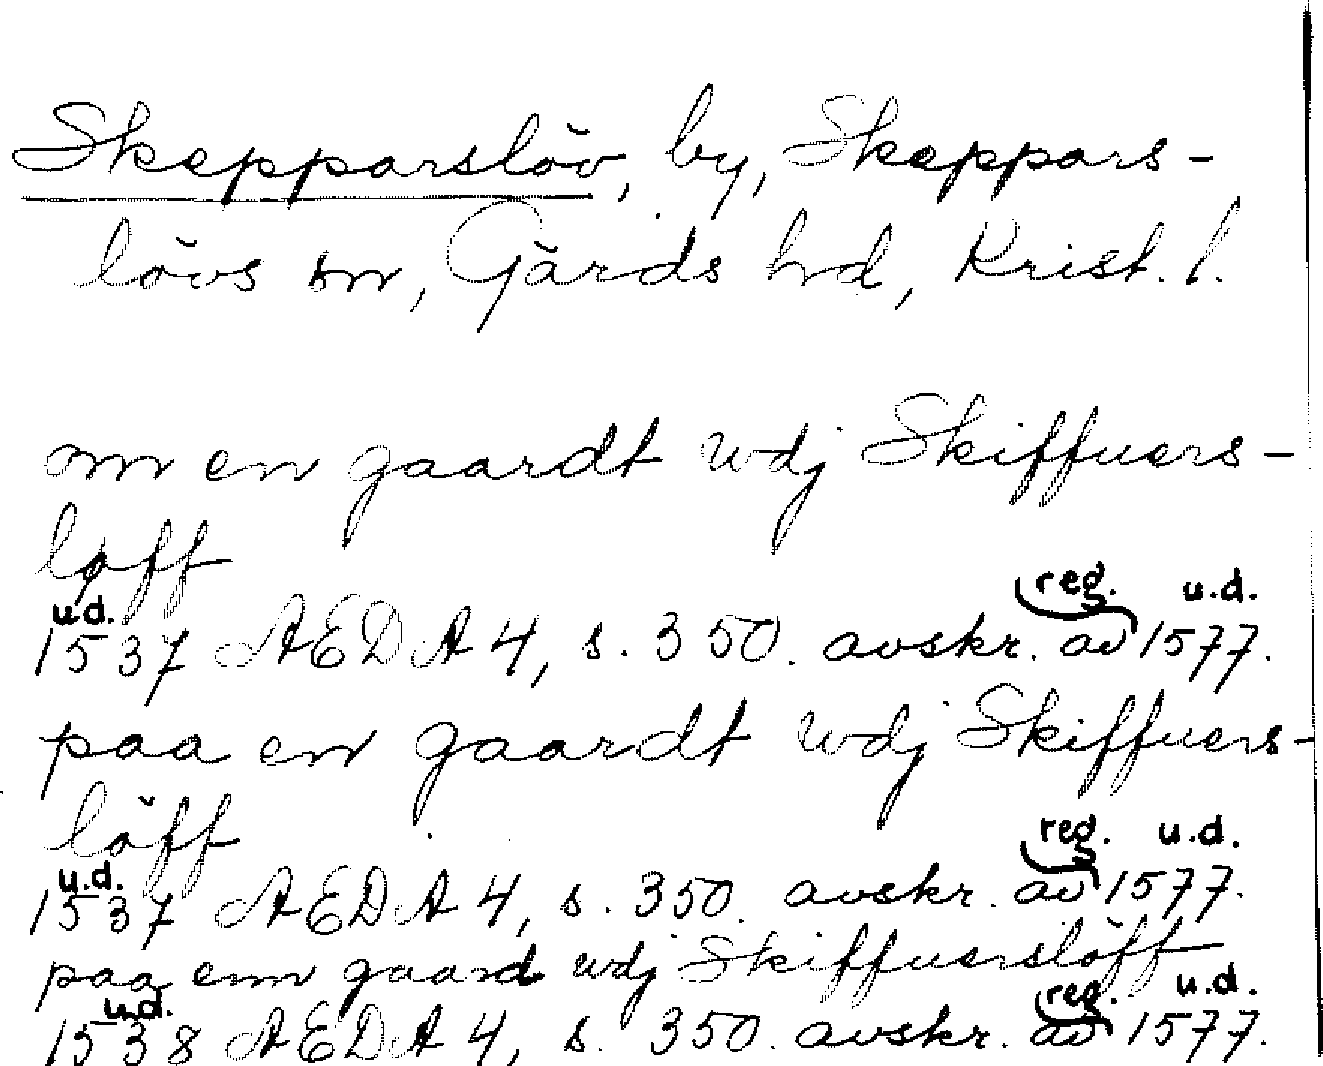 Skepparslöv, by, Skeppars-
lövs sn, Gärds hd, Krist. l.
om en gaardt wdj Skiffuers-
løff
reg. u.d.
u.d.
1537 AEDA 4, s. 350. avskr. av 1577.
paa en gaardt wdj Skiffuers-
löff
reg. u.d.
u.d.
1537 AEDA 4, s. 350. avskr. av 1577.
paa enn gaard wdj Skiffuerslöff
u.d. reg. u.d.
1538 AEDA 4, s. 350. avskr. av 1577.